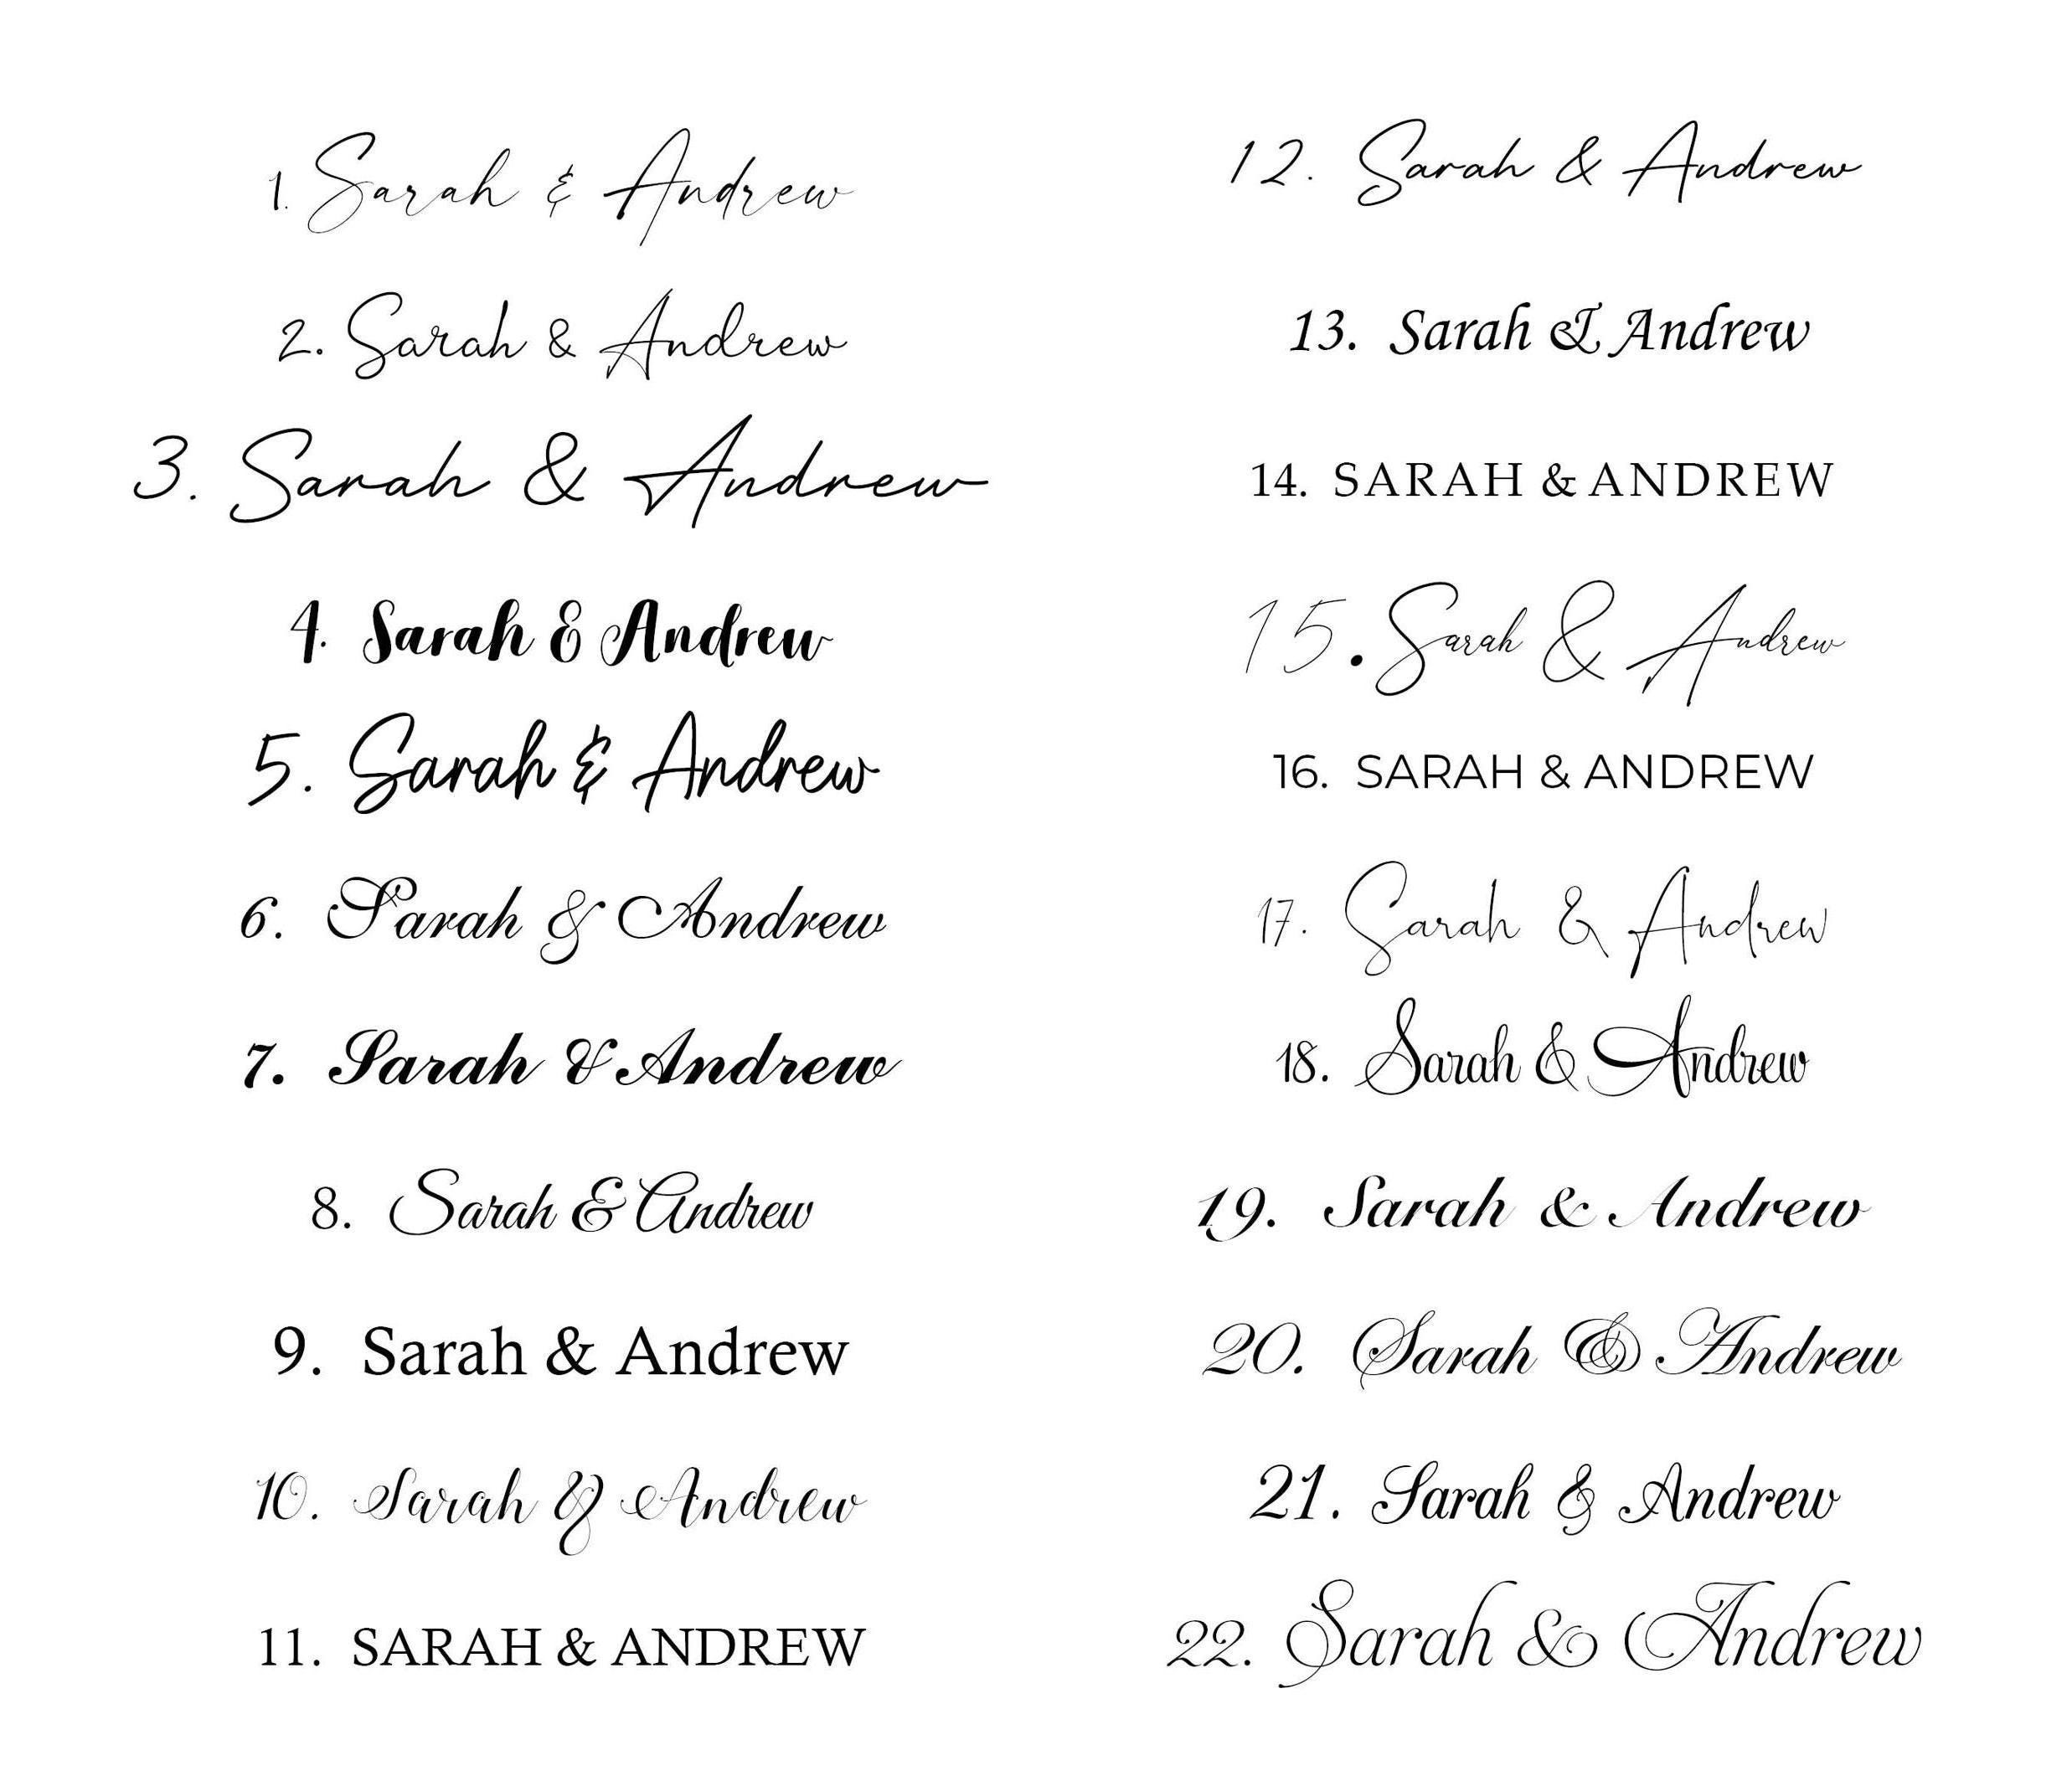 1. Sarah & Andrew
2. Sarah & Andrew
3. Sarah & Andrew
4. Sarah & Andrew
5. Sarah & Andrew
6. Sarah & Andrew
7. Sarah & Andrew
8. Sarah & Andrew
9. Sarah & Andrew
10. Sarah & Andrew
11. SARAH & ANDREW
12. Sarah & Andrew
13. Sarah & Andrew
14. SARAH & ANDREW
15. Sarah & Andrew
16. SARAH & ANDREW
17. Sarah & Andrew
18. Sarah & Andrew
19. Sarah & Andrew
20. Sarah & Andrew
21. Sarah & Andrew
22. Sarah & Andrew